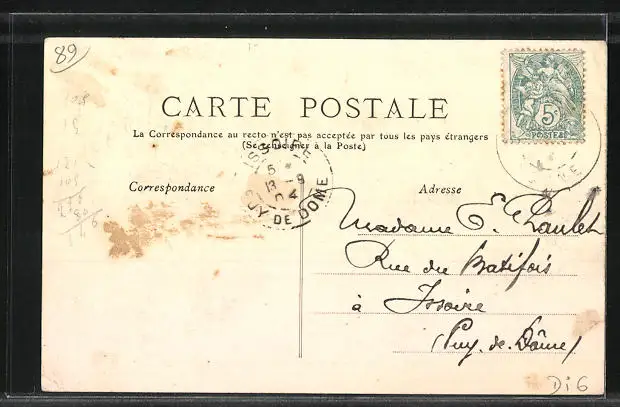 89
CARTE POSTALE
La Correspondance au recto n'est pas acceptée par tous les pays étrangers
(Se renseigner à la Poste)
5c
POSTES
ISSOIRE
5
13 -9
04
PUY DE DÔME
Correspondance
Adresse
Madame E.
Rue du Batifois
à Issoire
(Puy-de-Dôme)
Di6